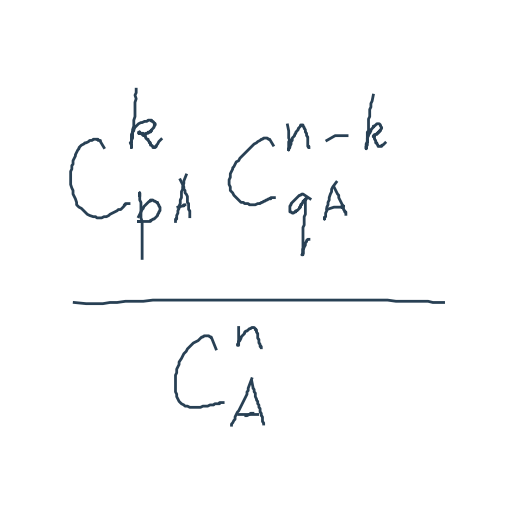 \frac{C_{pA}^{k} C_{qA}^{n-k}}{C_{A}^{n}}